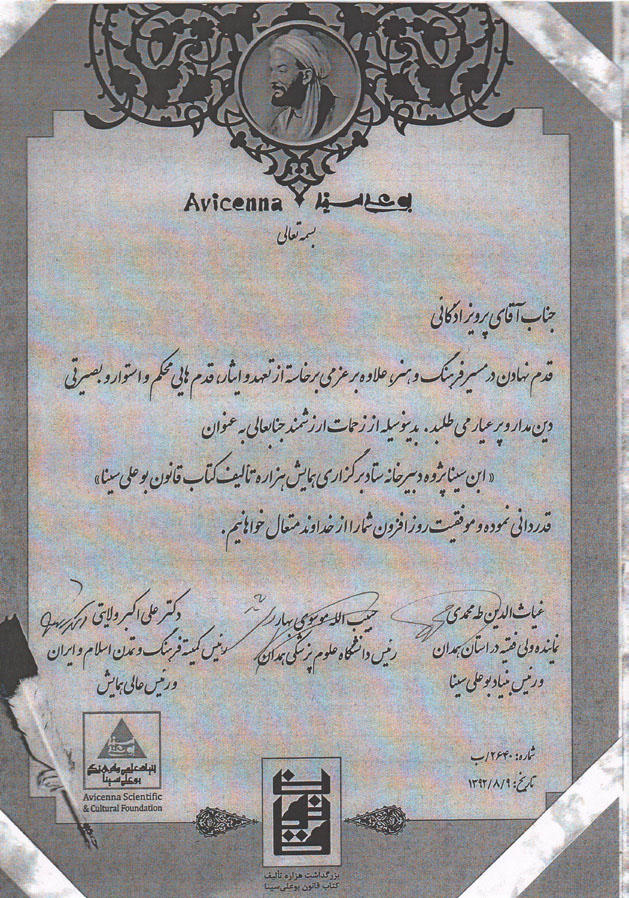 Avicenna بوعلی سینا
بسمه تعالی
جناب آقای پرویز اذکائی
قدم نهادن در مسیر فرهنگ و هنر، علاوه بر عزمی برخاسته از تعهد و ایثار، قدم هایی محکم و استوار و بصیرتی
دین مدار و پر عیار می طلبد. بدینوسیله از زحمات ارزشمند جنابعالی به عنوان
«ابن سینا پژوه دبیرخانه ستاد برگزاری همایش هزاره تالیف کتاب قانون بوعلی سینا»
قدردانی نموده و موفقیت روز افزون شما را از خداوند متعال خواهانیم.
غیاث الدین طه محمدی
نماینده ولی فقیه در استان همدان
و رئیس بنیاد بوعلی سینا
حبیب الله موسوی بهار
رئیس دانشگاه علوم پزشکی همدان
دکتر علی اکبر ولایتی
رئیس کمیته فرهنگ و تمدن اسلام و ایران
و رئیس عالی همایش
شماره: ۲۶۴۰/ب
تاریخ: ۱۳۹۲/۸/۹
بنیاد علمی و فرهنگی
بوعلی سینا
Avicenna Scientific
& Cultural Foundation
قانون
بزرگداشت هزاره تألیف
کتاب قانون بوعلی‌سینا